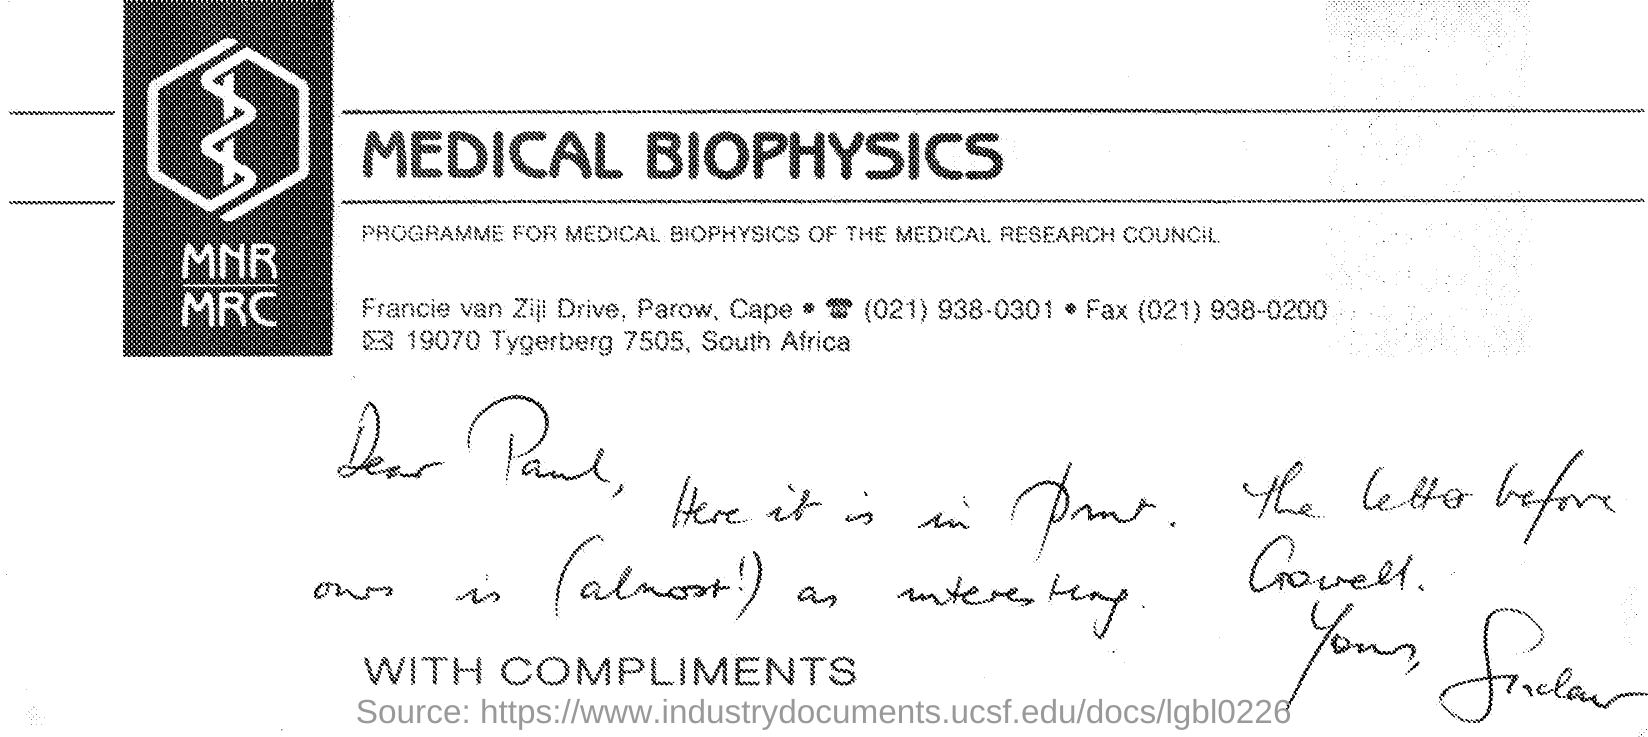 MEDICAL BIOPHYSICS
PROGRAMME FOR MEDICAL BIOPHYSICS OF THE MEDICAL RESEARCH COUNCIL
MNR
MRC
Francie van Zijl Drive, Parow, Cape • ☎ (021) 938-0301 • Fax (021) 938-0200
✉ 19070 Tygerberg 7505, South Africa
Dear Paul,
Here it is in print. The letter before
ours is (almost!) as interesting.
Yours, Sinclair
WITH COMPLIMENTS
Source: https://www.industrydocuments.ucsf.edu/docs/lgbl0226